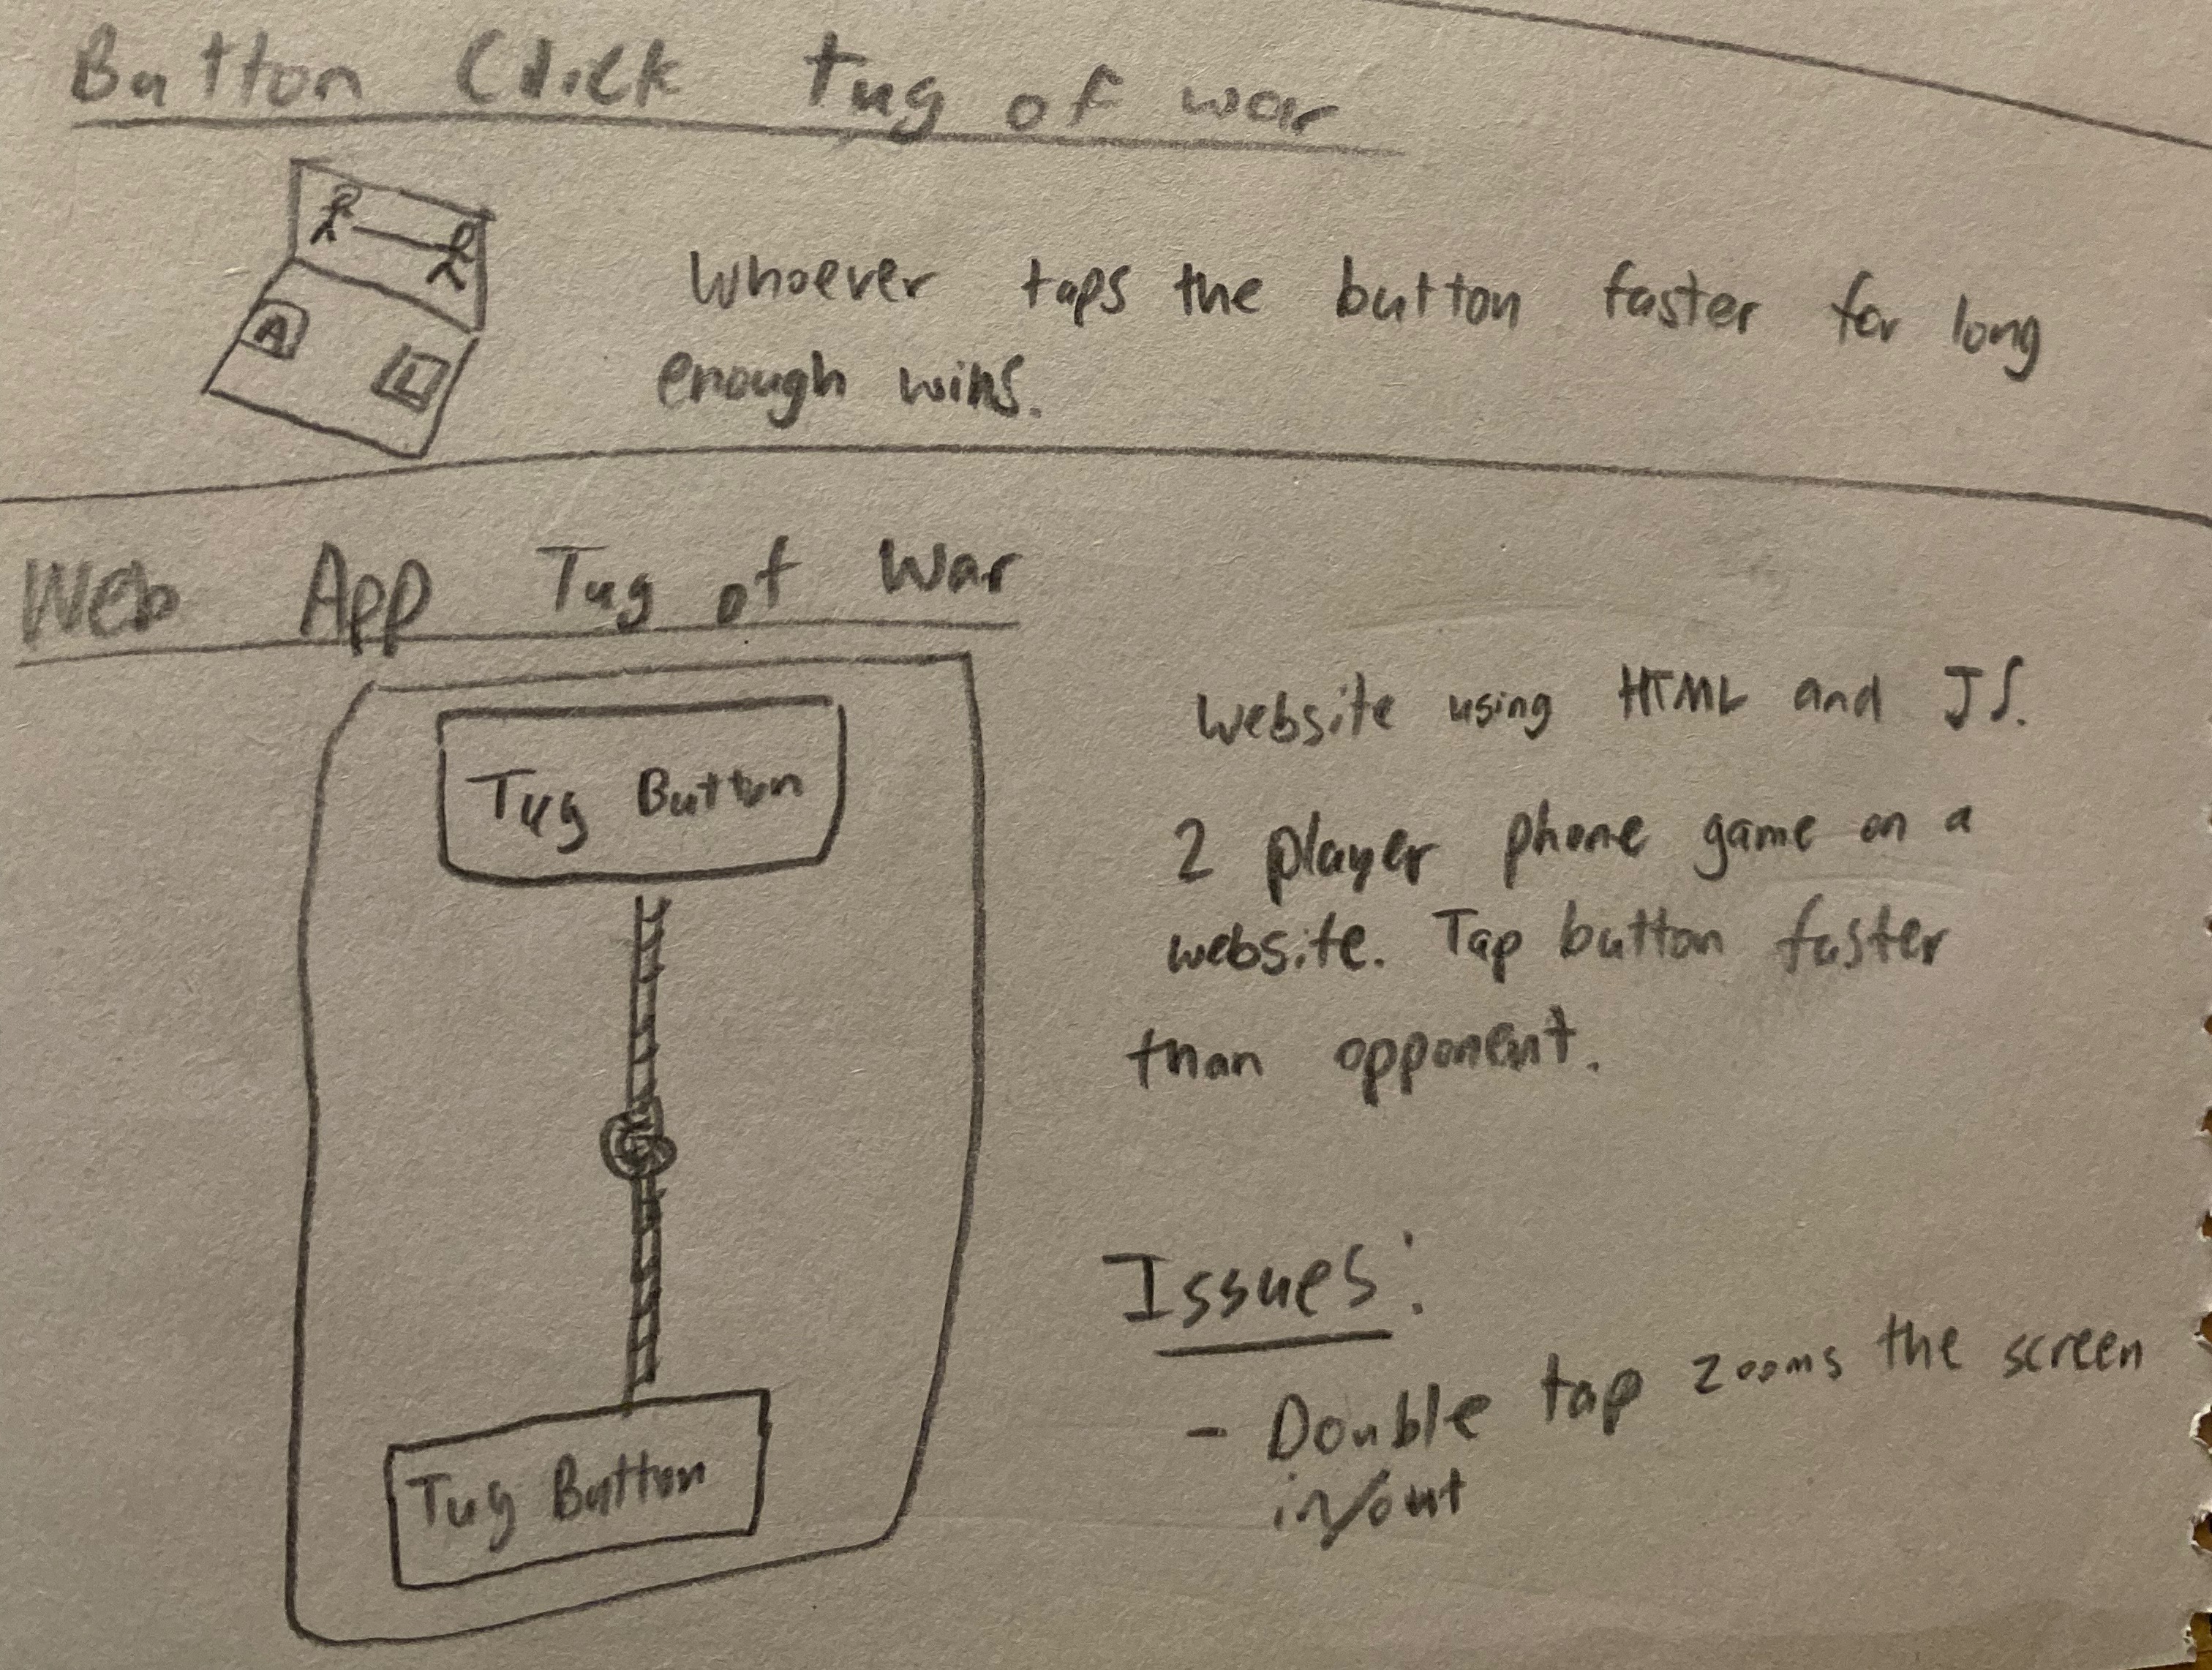 Button Click tug of war
A
L
Whoever taps the button faster for long
enough wins.
Web App Tug of War
Tug Button
Tug Button
Website using HTML and JS.
2 player phone game on a
website. Tap button faster
than opponent.
Issues:
- Double tap zooms the screen
in/out